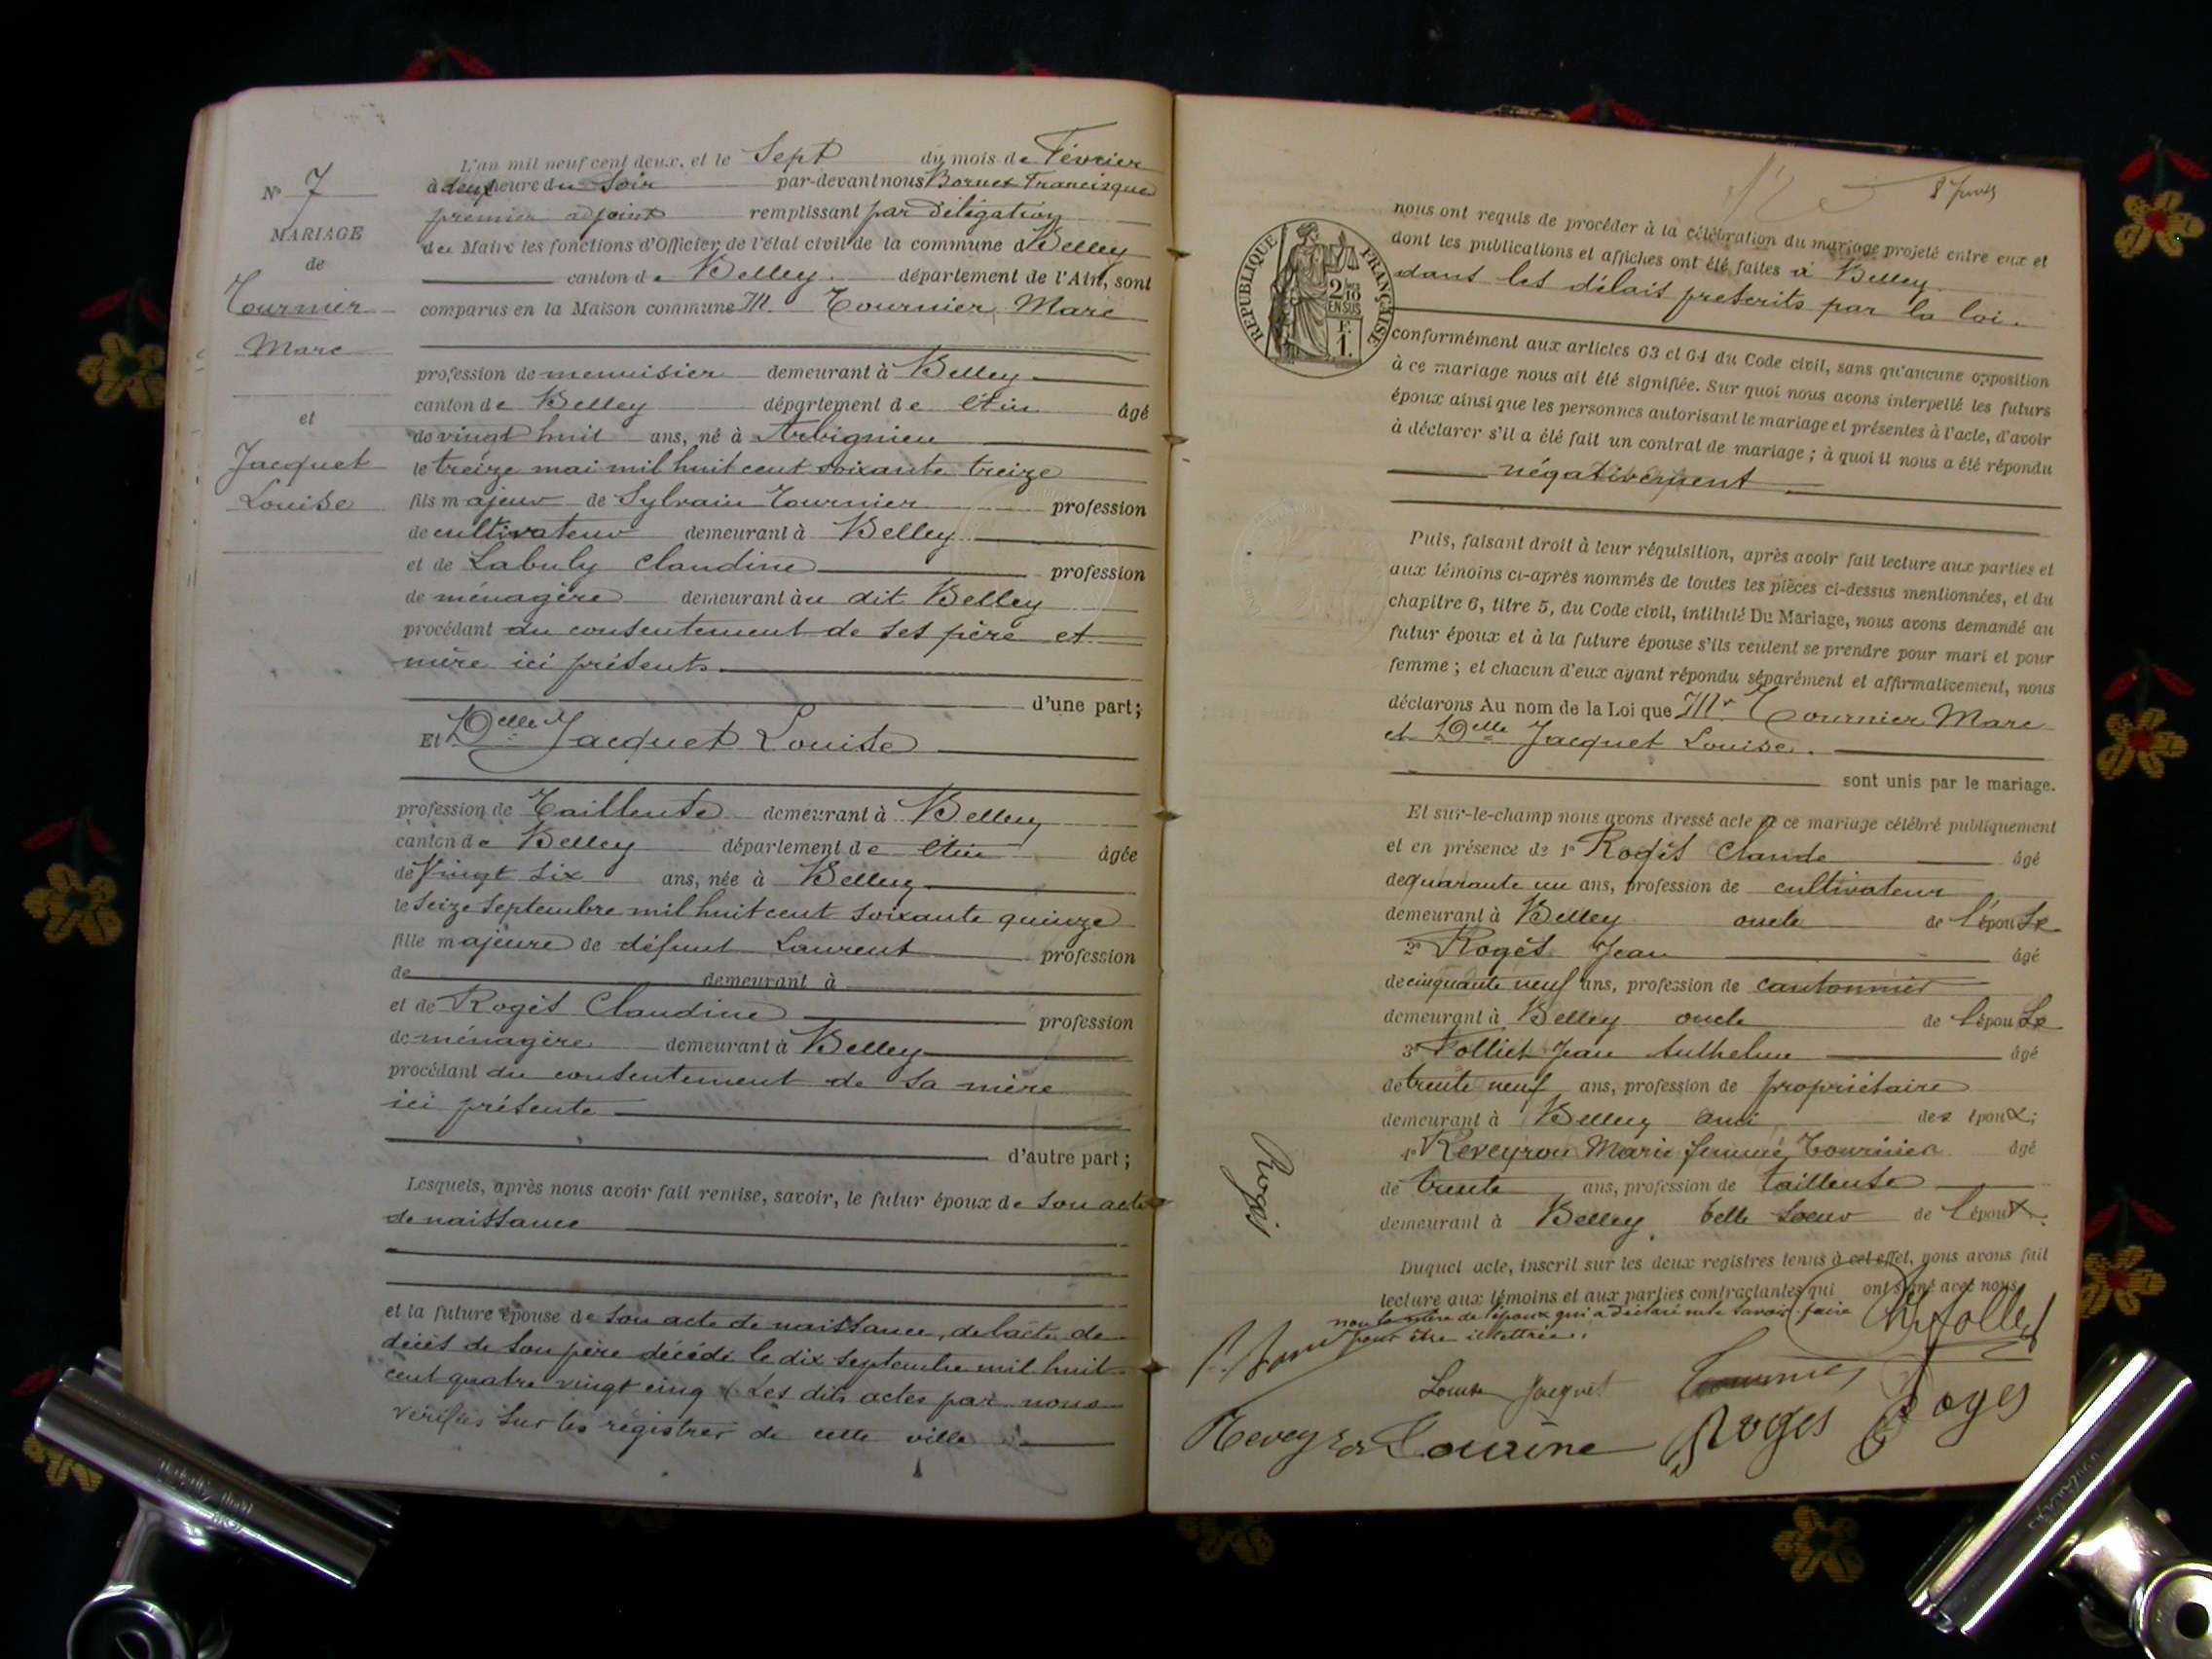 L'an mil neuf cent deux, et le Sept du mois de Février
N° 7
à deux heure du Soir par-devant nous Bornet Francisque
premier adjoint remplissant par déligation
MARIAGE
du Maire les fonctions d'Officier de l'état civil de la commune de Belley
de
canton de Belley. département de l'Ain, sont
Tournier
comparus en la Maison commune M. Tournier, Marc
Marc
profession de menuisier demeurant à Belley
canton de Belley département de l'Ain âgé
et
de vingt huit ans, né à Arbignieu
Jacquet
le treize mai mil huit cent soixante treize
Louise
fils majeur de Sylvain Tournier profession
de cultivateur demeurant à Belley
et de Labuly Claudine profession
de ménagère demeurant àu dit Belley
procédant du consentement de ses père et
mère ici présents.
d'une part;
Et Delle Jacquet Louise
profession de Tailleuse demeurant à Belley
canton de Belley département de l'Ain âgée
de Vingt six ans, née à Belley
le Seize Septembre mil huit cent soixante quinze
fille majeure de défunt Laurent profession
de demeurant à
et de Rogès Claudine profession
de ménagère demeurant à Belley
procédant du consentement de sa mère
ici présente
d'autre part;
Lesquels, après nous avoir fait remise, savoir, le futur époux de son acte
de naissance
et la future épouse de son acte de naissance, de l'acte de
décès de son père décédé le dix septembre mil huit
cent quatre vingt cinq (Les dits actes par nous
vérifiés sur les registres de cette ville
nous ont requis de procéder à la célébration du mariage projeté entre eux et
dont les publications et affiches ont été faites à Belley
dans les délais prescrits par la loi.
RÉPUBLIQUE FRANÇAISE
2/10
EN SUS
F.
1.
conformément aux articles 63 et 64 du Code civil, sans qu'aucune opposition
à ce mariage nous ait été signifiée. Sur quoi nous avons interpellé les futurs
époux ainsi que les personnes autorisant le mariage et présentes à l'acte, d'avoir
à déclarer s'il a été fait un contrat de mariage; à quoi il nous a été répondu
négativement
Puis, faisant droit à leur réquisition, après avoir fait lecture aux parties et
aux témoins ci-après nommés de toutes les pièces ci-dessus mentionnées, et du
chapitre 6, titre 5, du Code civil, intitulé Du Mariage, nous avons demandé au
futur époux et à la future épouse s'ils veulent se prendre pour mari et pour
femme; et chacun d'eux ayant répondu séparément et affirmativement, nous
déclarons Au nom de la Loi que Mr Tournier Marc
et Delle Jacquet Louise.
sont unis par le mariage.
Et sur-le-champ nous avons dressé acte de ce mariage célébré publiquement
et en présence de 1° Rogès Claude âgé
de quarante un ans, profession de cultivateur
demeurant à Belley oncle de l'épouse
2° Rogès Jean âgé
de cinquante neuf ans, profession de cantonnier
demeurant à Belley oncle de l'épouse
3° Folliet Jean Anthelme âgé
de trente neuf ans, profession de propriétaire
demeurant à Belley ami des époux;
4° Reveyron Marie femme Tournier âgé
de trente ans, profession de tailleuse
demeurant à Belley belle soeur de l'époux.
Rogès
Duquel acte, inscrit sur les deux registres tenus à cet effet, nous avons fait
lecture aux témoins et aux parties contractantes qui ont signé avec nous
non la mère de l'époux qui a déclaré ne le savoir faire
pour être illettrée.
Folliet
Louise Jacquet Tournier
Reveyron Rogès Rogès